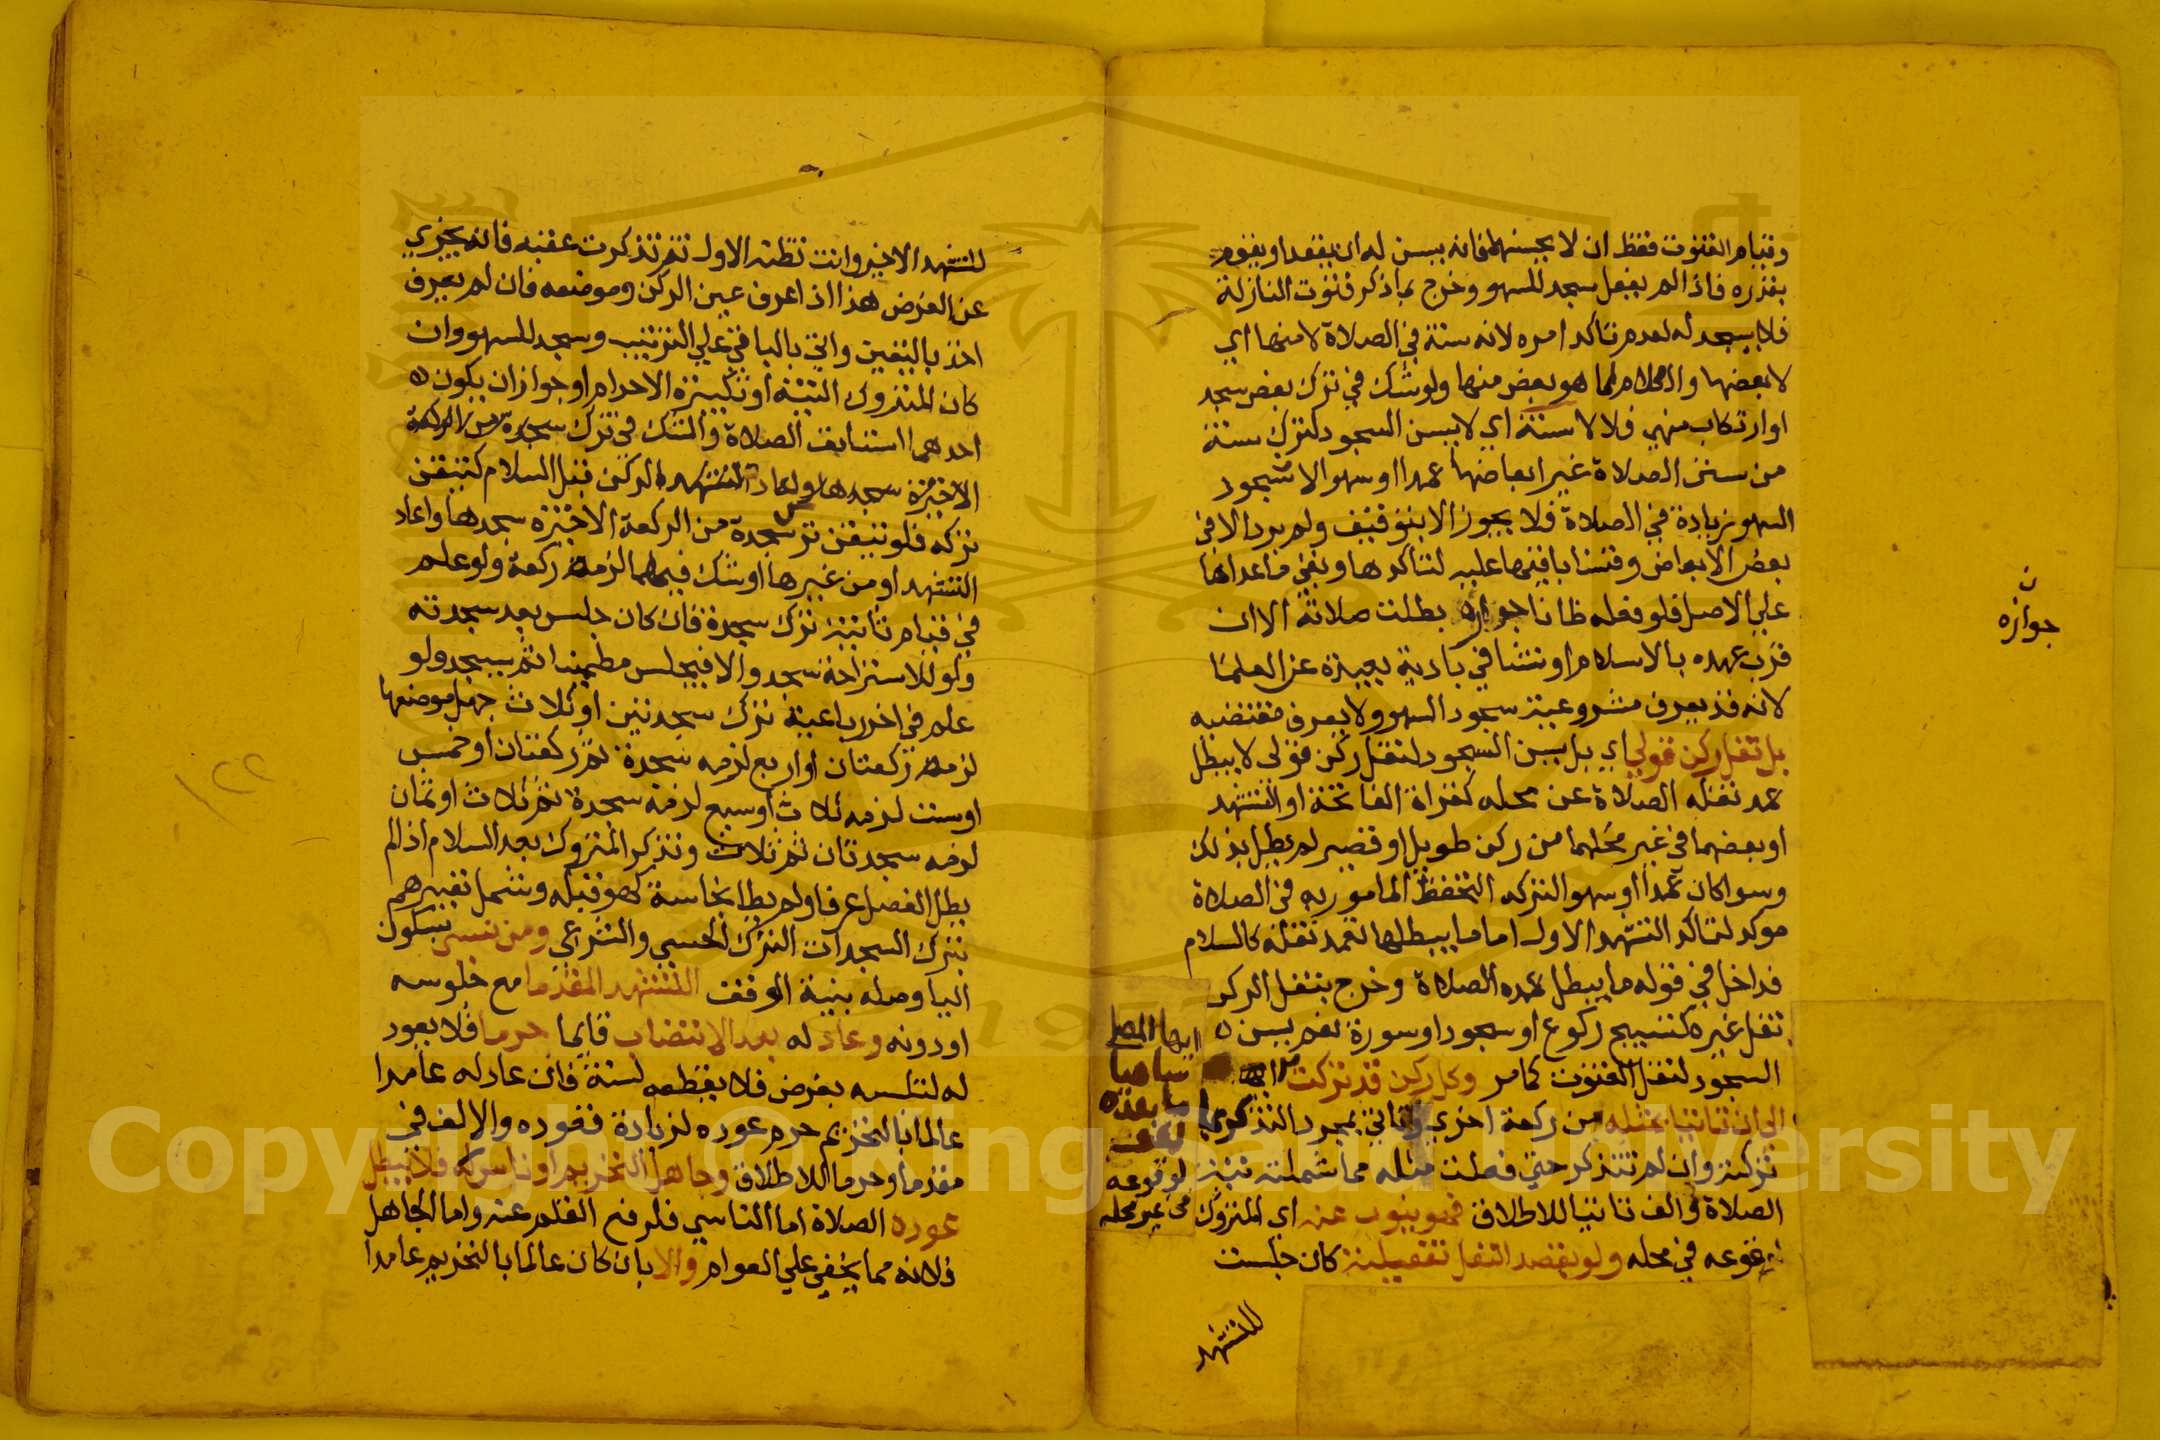 وقيام القنوت فقط ان لا يحسنهما فانه يسن له ان يقعد او يقوم
بقدره فاذا لم يفعل سجد للسهو وخرج بما ذكر قنوت النازلة
فلا يسجد له لعدم تاكد امره لانه سنة في الصلاة لا منها اي
لا بعضها والكلام لما هو بعض منها ولو شك في ترك بعض سجد
او ارتكاب منهي فلا لا سنة اي لا يسن السجود لترك سنة
من سنن الصلاة غير ابعاضها عمدا او سهوا لان سجود
السهو زيادة في الصلاة فلا يجوز الا بتوقيف ولم يرد الا في
بعض الابعاض وقسنا باقيها عليه لتاكدها وبقي ما عداها
علي الاصل فلو فعله ظانا جوازه بطلت صلاته الا ان
قرب عهده بالاسلام او نشا في بادية بعيدة عن العلما
لانه قد يعرف مشروعية سجود السهو ولا يعرف مقتضيه
بل نقل ركن قولي اي بل يسن السجود لنقل ركن قولي لا يبطل
عمد نقله الصلاة عن محله كقراة الفاتحة او التشهد
او بعضهما في غير محلهما من ركن طويل او قصير لم يطل بذلك
وسوا كان عمدا او سهوا لتركه التحفظ المامور به في الصلاة
موكد لتاكد التشهد الاول اما ما يبطلها تعمد نقله كالسلام
فداخل في قوله ما يبطل عمده الصلاة وخرج بنقل الركن
نقل غيره كتسبيح ركوع او سجود او سورة نعم يسن
السجود لنقل القنوت كما مر وكل ركن قد تركت
ايها المصلي
ساهيا
ما بعده
الي ان تاتيا بمثله من ركعة اخري واتي بمجرد التذكر بما
تركته وان لم تتذكر حتي فعلت مثله مما شملته نية
لوقوعه
في غير محله
الصلاة والف تاتيا للاطلاق فهو ينوب عنه اي المتروك
لوقوعه في محله ولو بقصد النفل تفعيلته كان جلست
للتشهد
جوازه
للتشهد الاخير وانت تظنه الاول ثم تذكرت عقبه فانه يجزي
عن الفرض هذا اذا عرف عين الركن وموضعه فان لم يعرف
اخذ باليقين واتي بالباقي علي الترتيب وسجد للسهو وان
كان المتروك النية او تكبيرة الاحرام او جواز ان يكون
احدهما استانف الصلاة والشك في ترك سجدة من الركعة
الاخيرة سجدها واعاد التشهد الركن قبل السلام كتيقن
تركه فلو تيقن ترك سجدة من الركعة الاخيرة سجدها واعاد
التشهد او من غيرها او شك فيهما لزمه ركعة ولو علم
في قيام ثانية ترك سجدة فان كان جلس بعد سجدته
ولو للاستراحة سجد والا فيجلس مطمينا ثم يسجد ولو
علم في اخر رباعية ترك سجدتين او ثلاث جهل موضعها
لزمه ركعتان او اربع لزمه سجدة ثم ركعتان او خمس
او ست لزمه ثلاث او سبع لزمه سجدة ثم ثلاث او ثمان
لزمه سجدتان ثم ثلاث وتذكر المتروك بعد السلام اذا لم
يطل الفصل عرفا ولم يطا نجاسة كهو قبله وشمل تعبيرهم
بترك السجدات الترك الحسي والشرعي ومن نسي بسكون
اليا وصله بنية الوقف التشهد المقدما مع جلوسه
او دونه وعاد له بعد الانتصاب قايما حرما فلا يعود
له لتلبسه بفرض فلا يقطعه لسنة فان عاد له عامدا
عالما بالتحريم حرم عوده لزيادة قعوده والالف في
مقدما وحرما للاطلاق وجاهل التحريم او ناس كه فلا يبطل
عوده الصلاة اما الناسي فلرفع القلم عنه واما الجاهل
فلانه مما يخفي علي العوام والا بان كان عالما بالتحريم عامدا
Copyright © King Saud University
1957